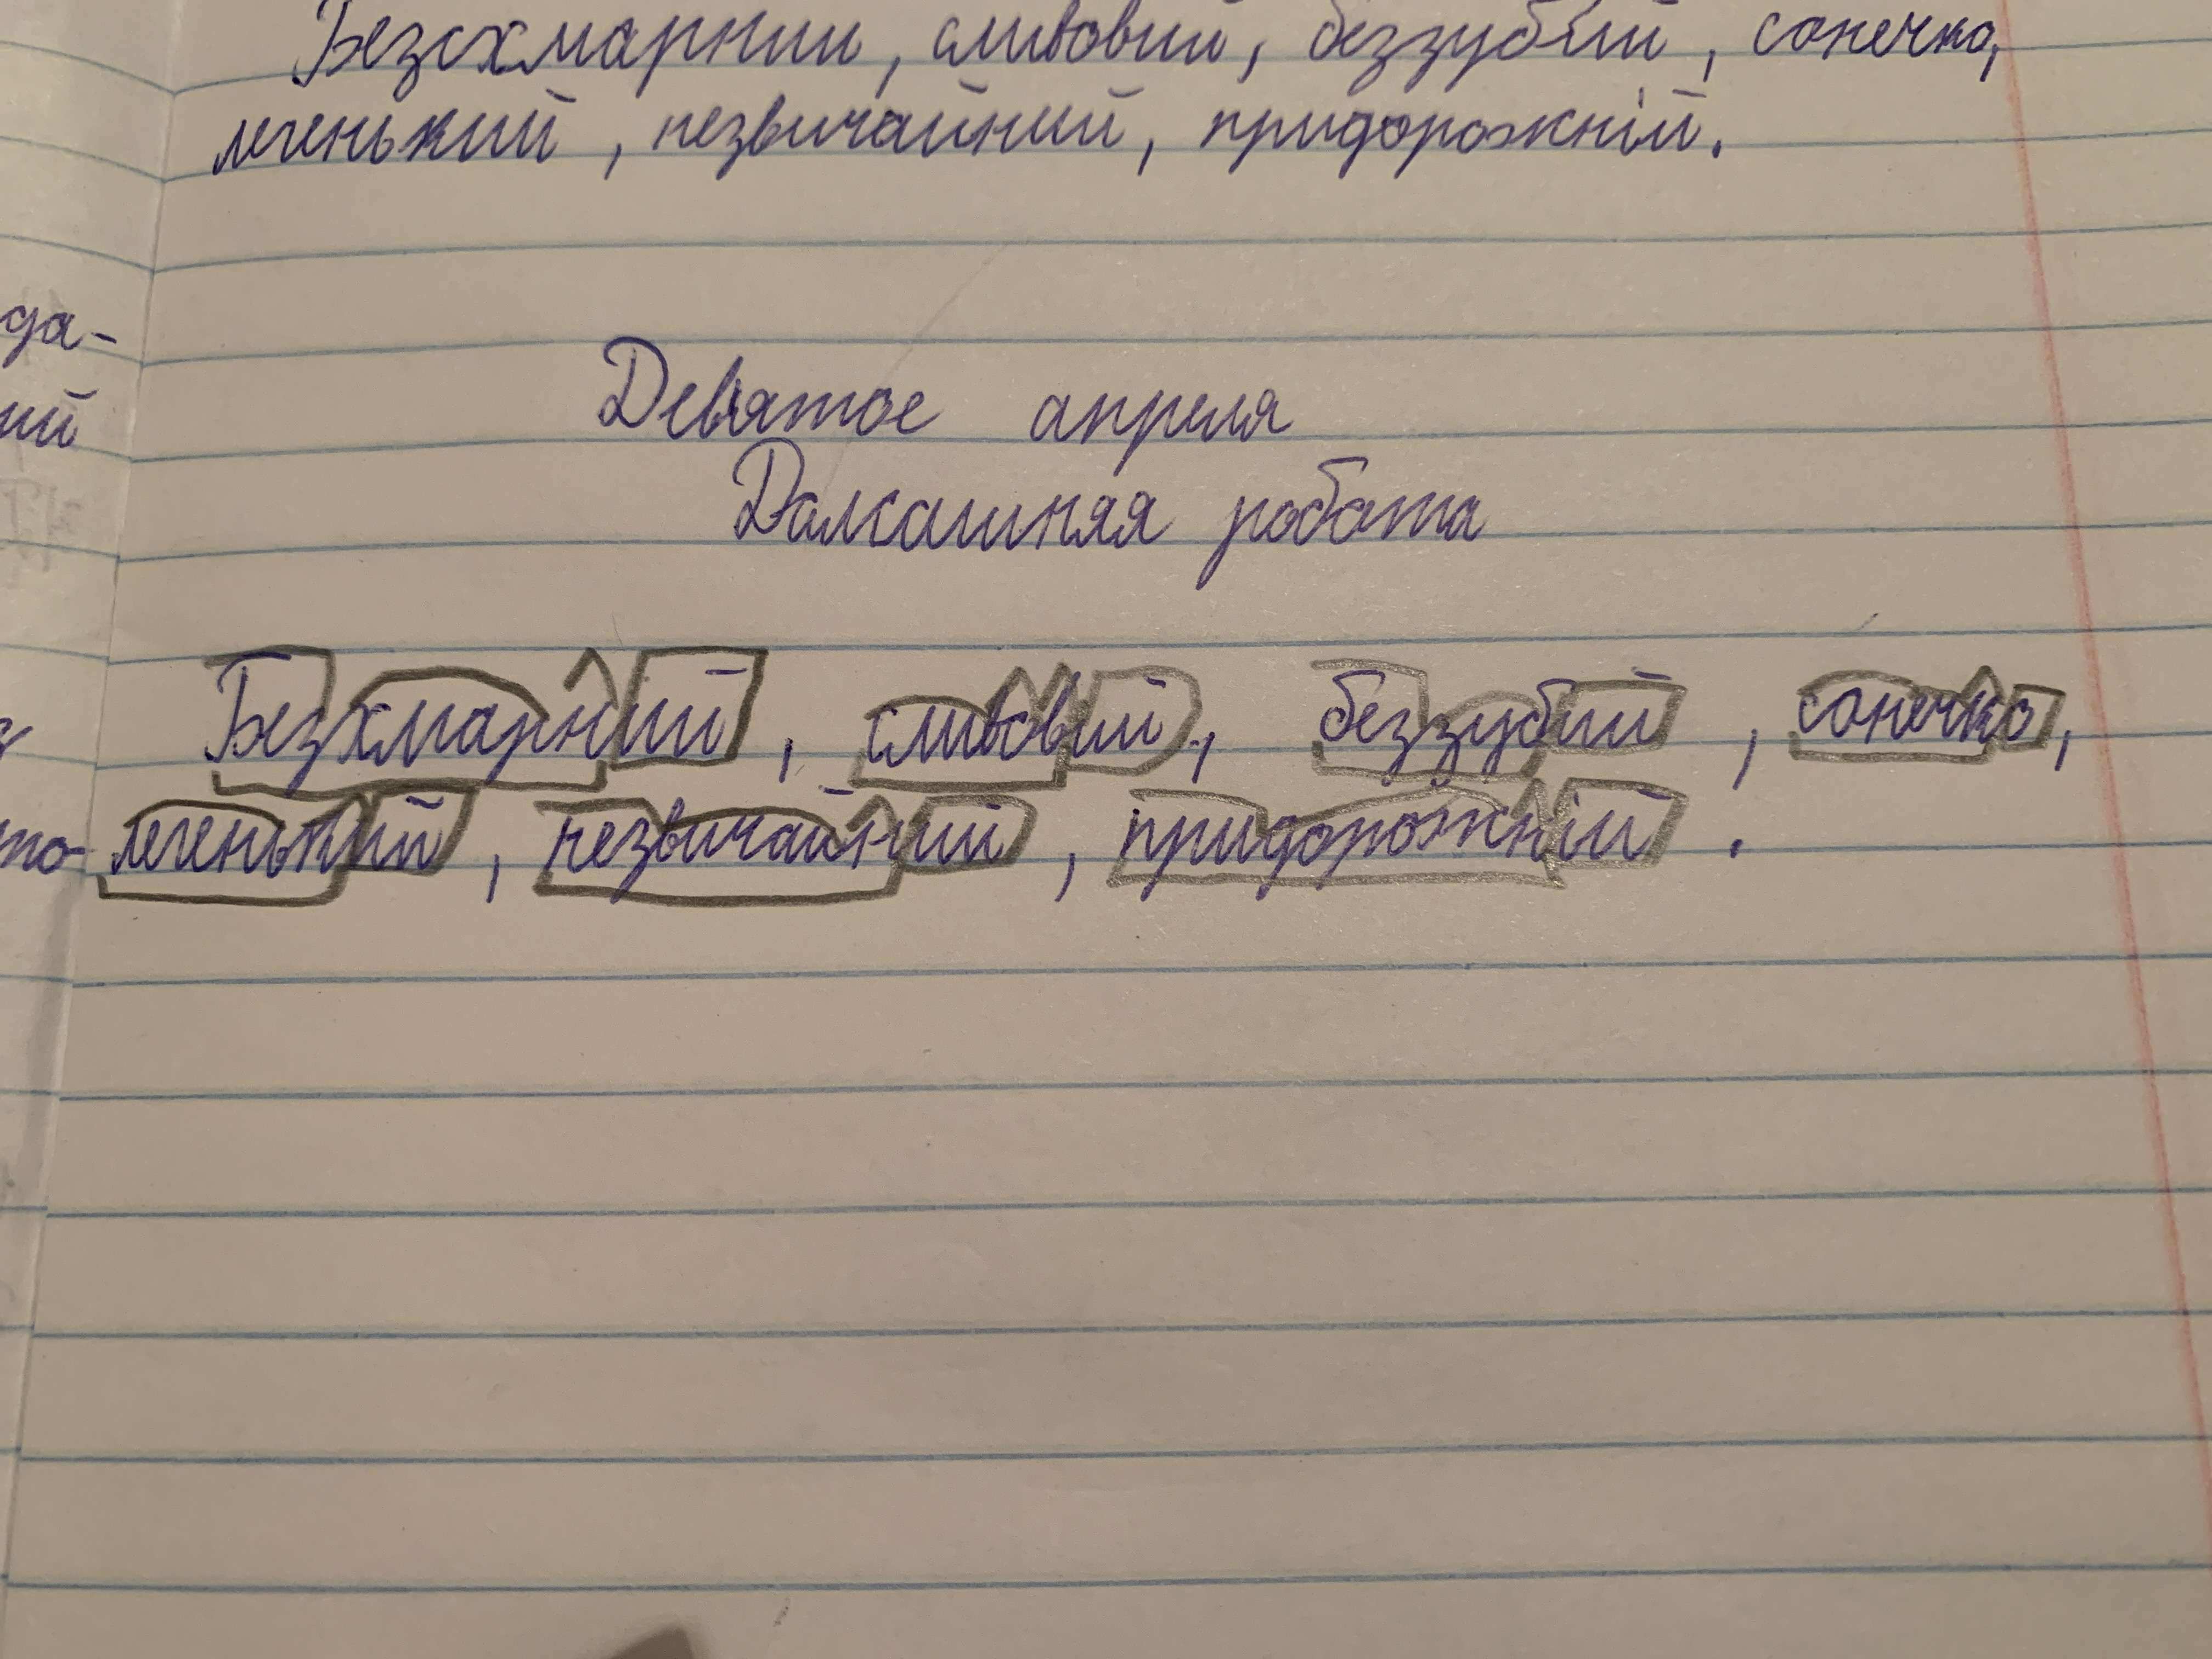 Безсхмарний, сливовий, беззубий, сонечко,
легенький, незвичайний, придорожній.
да-
ий
Девятое апреля
Домашняя робота
Безхмарний, сливовий, беззубий, сонечко,
то-
легенький, незвичайний, придорожній.